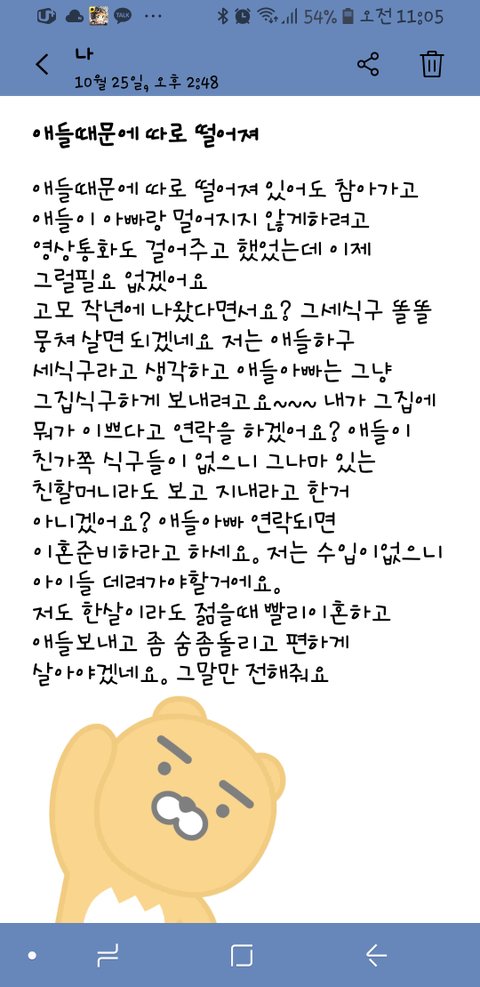 54% 오전 11:05
나
10월 25일, 오후 2:48
애들때문에 따로 떨어져
애들때문에 따로 떨어져 있어도 참아가고
애들이 아빠랑 멀어지지 않게하려고
영상통화도 걸어주고 했었는데 이제
그럴필요 없겠어요
고모 작년에 나왔다면서요? 그세식구 똘똘
뭉쳐 살면 되겠네요 저는 애들하구
세식구라고 생각하고 애들아빠는 그냥
그집식구하게 보내려고요~~~ 내가 그집에
뭐가 이쁘다고 연락을 하겠어요? 애들이
친가쪽 식구들이 없으니 그나마 있는
친할머니라도 보고 지내라고 한거
아니겠어요? 애들아빠 연락되면
이혼준비하라고 하세요. 저는 수입이없으니
아이들 데려가야할거에요.
저도 한살이라도 젊을때 빨리이혼하고
애들보내고 좀 숨좀돌리고 편하게
살아야겠네요. 그말만 전해줘요